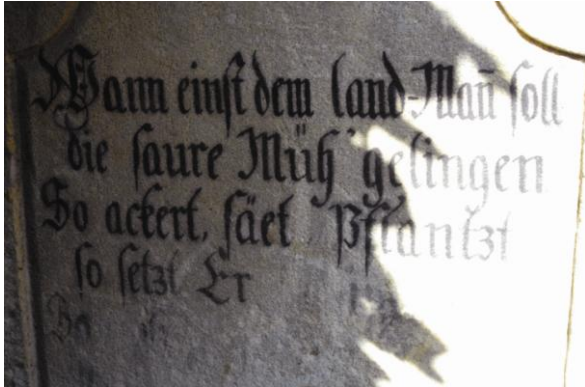 Wann einſt dem land-Man̄ ſoll
die ſaure Müh' gelingen
So ackert, ſäet Pflantzt
ſo ſetzt Er